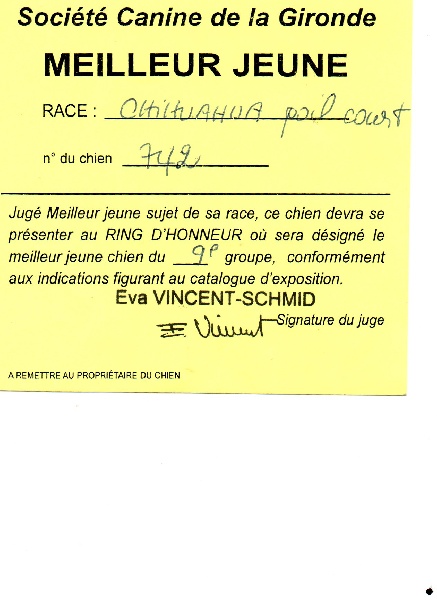 Société Canine de la Gironde
MEILLEUR JEUNE
RACE : CHIHUAHUA poil court
n° du chien 742
Jugé Meilleur jeune sujet de sa race, ce chien devra se
présenter au RING D'HONNEUR où sera désigné le
meilleur jeune chien du 9e groupe, conformément
aux indications figurant au catalogue d'exposition.
Eva VINCENT-SCHMID
E. Vincent Signature du juge
A REMETTRE AU PROPRIÉTAIRE DU CHIEN